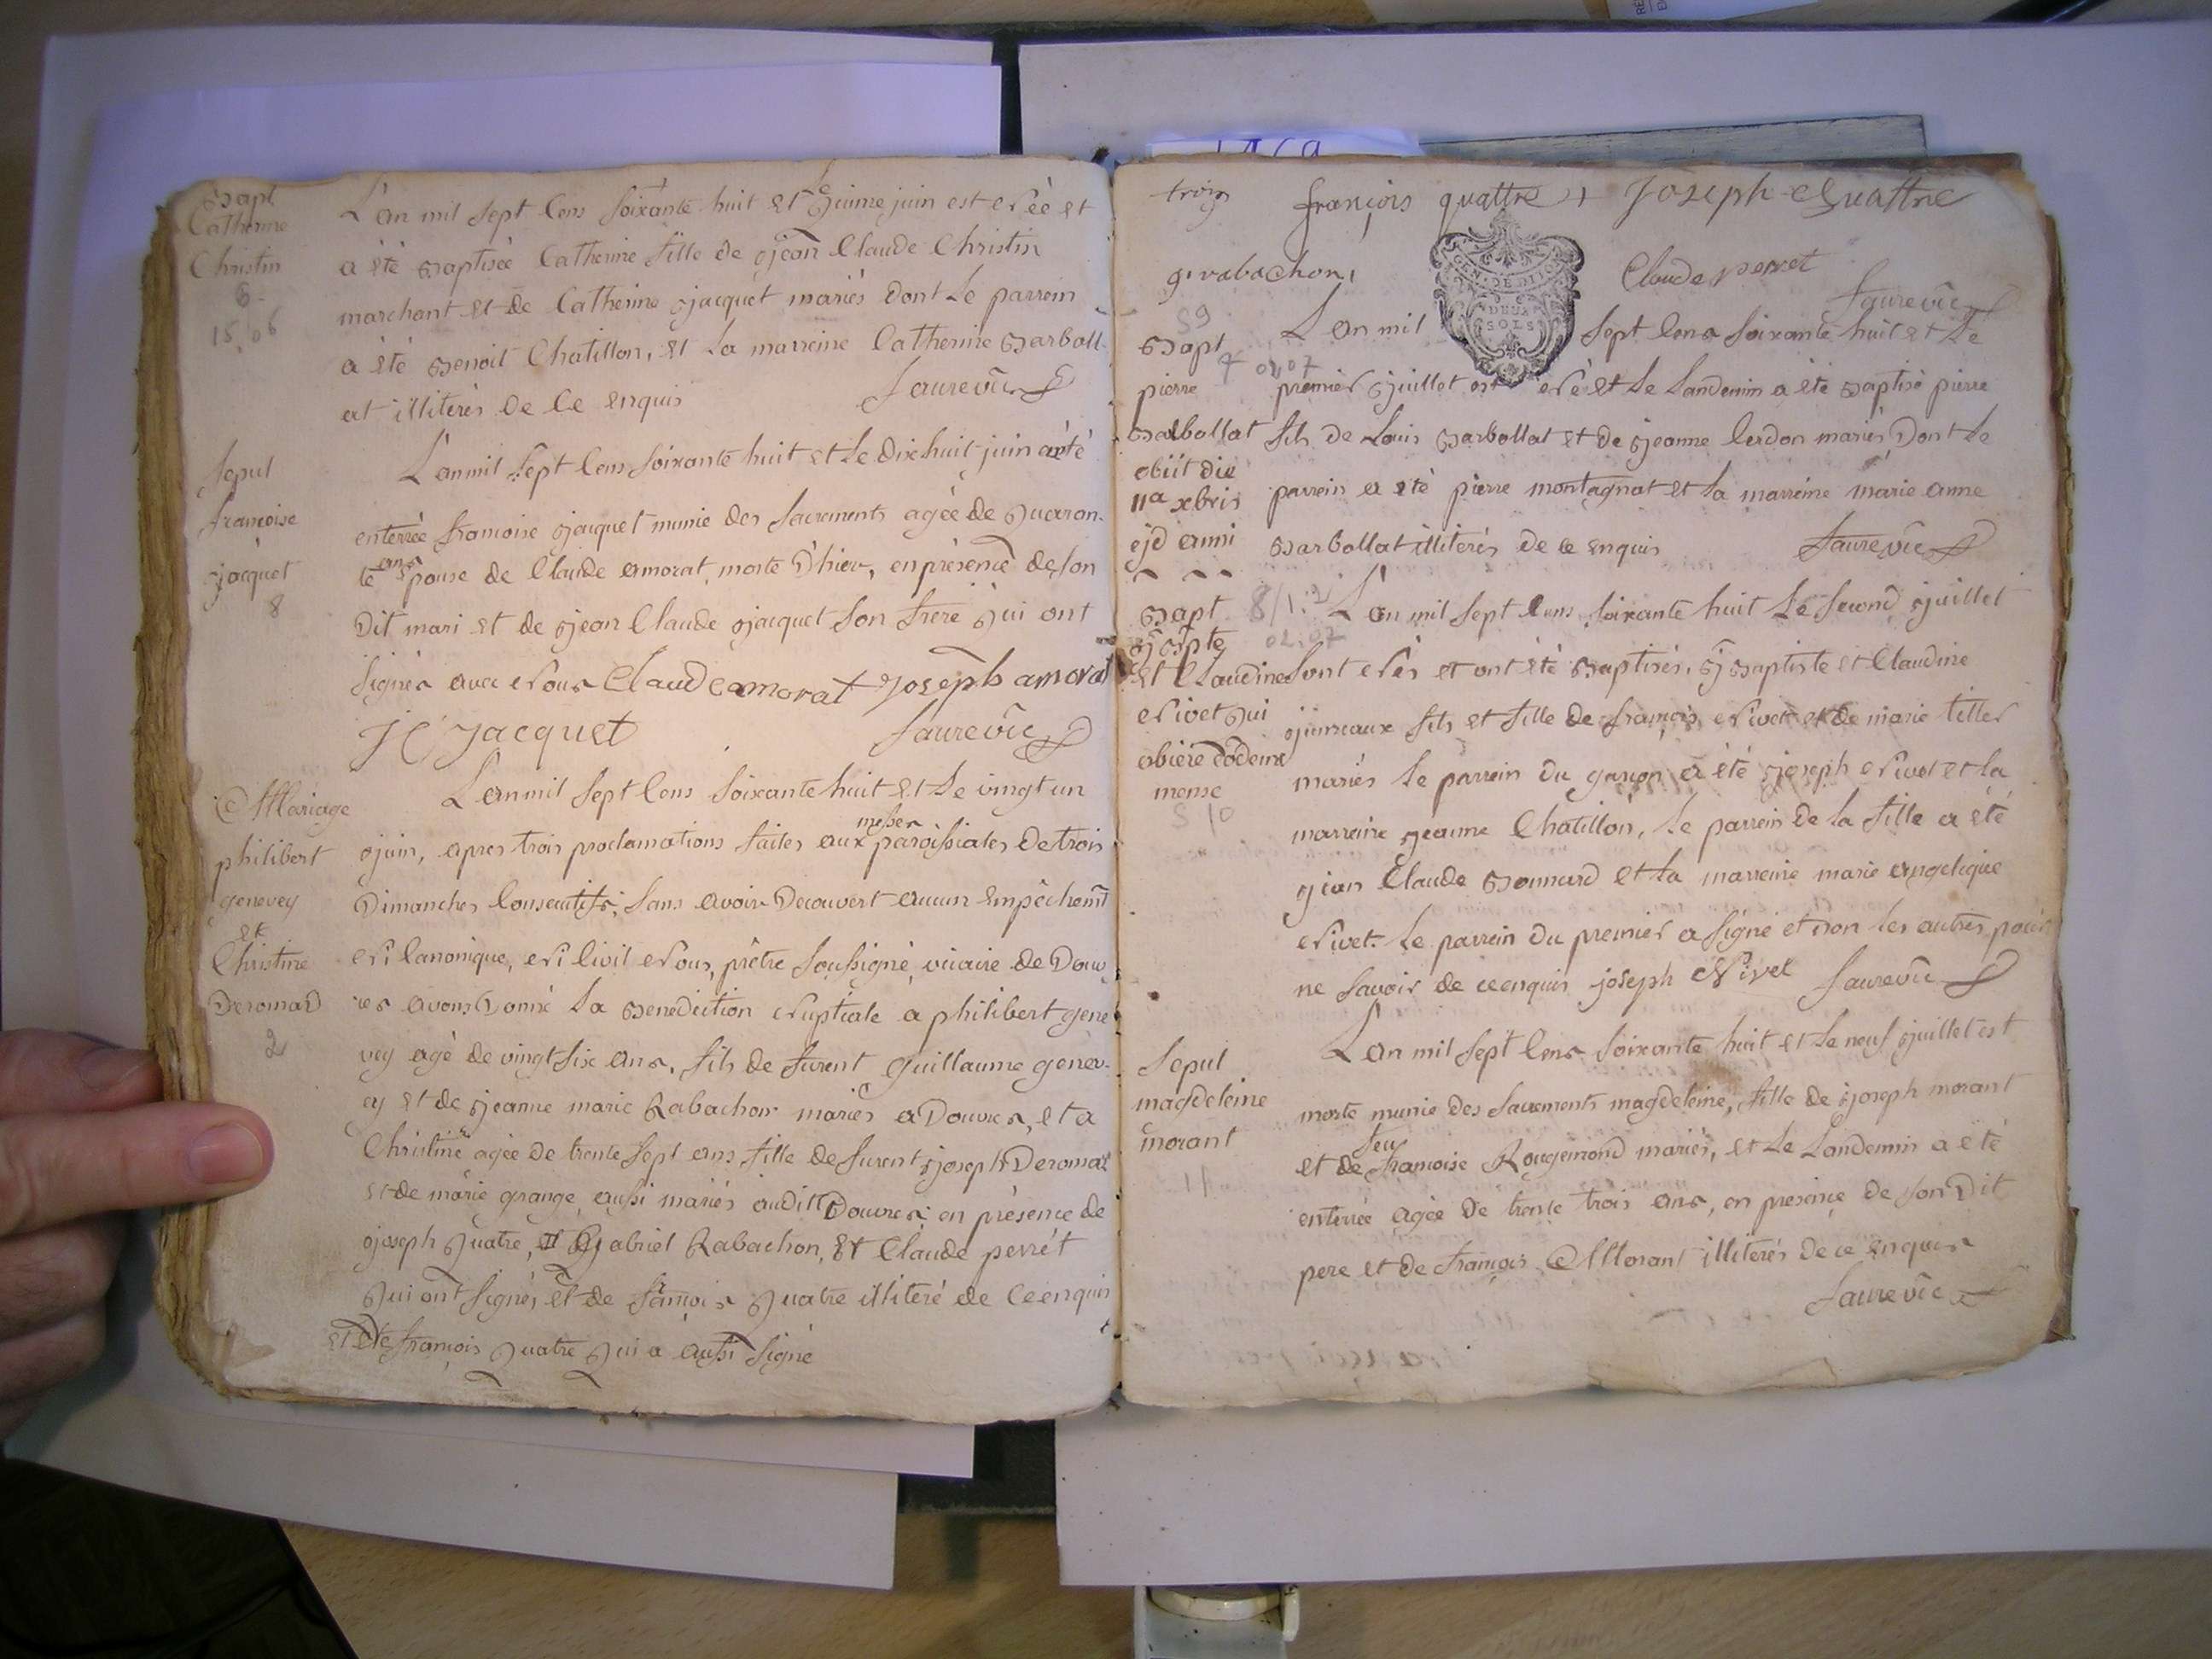 Bapt
Catherine
Christin
6
15.06
L'an mil sept cens soixante huit et le quinze juin est née et
a été baptisée Catherine fille de jean Claude Christin
marchant et de Catherine jacquet mariés dont le parrein
a été Benoit Chatillon, et la marreine Catherine Barboll.
at illiterés de ce enquis
faure vic
Sepul
francoise
jacquet
8
L'an mil sept cens soixante huit et le dixhuit juin a été
enterrée francoise jacquet munie des sacrements agée de quaran-
te ans epouse de Claude amorat, morte d'hier, en présence de son
dit mari et de jean Claude jacquet son frere qui ont
signés avec nous Claude amorat Joseph amorat
J C Jacquet faure vic
Mariage
philibert
genevey
et
Christine
Deromad
2
L'an mil sept cens soixante huit et le vingt un
juin, apres trois proclamations faites aux messes paroissiales de trois
Dimanches consecutifs, sans avoir decouvert aucun empêchemt
ni canonique, ni civil nous, prêtre soussigné, vicaire de Douv
res avons donné la benediction nuptiale a philibert gene
vey agé de vingt six ans, fils de furent guillaume genev-
ey et de jeanne marie Rabachon mariés a Douvres, et a
Christine agée de trente sept ans fille de furent joseph Deromad
et de marie grange, aussi mariés audit Douvres en présence de
joseph quatre, et gabriel Rabachon, et Claude perrét
qui ont signés, et de françois quatre illiteré de ce enquis
et de françois quatre qui a aussi signé
trois françois quattre Joseph Quattre
g. rabachon Claude perret
faure vic
GEN. DE DIJON
DEUX
SOLS
59
Bapt
4 01.07
pierre
Barbollat
obiit die
11a xbris
ejd anni
L'an mil sept cens soixante huit et le
premier juillet est né et le landemin a été baptisé pierre
fils de Louis Barbollat et de jeanne Cerdon mariés, dont le
parrein a été pierre montagnat et la marréine marie anne
Barbollat illiterés de ce enquis faure vic
Bapt
j Bpte
et Claudine
nivet qui
obiere eodem
mense
10
02.07
L'an mil sept cens soixante huit le second juillet
sont nés et ont été baptisés, j baptiste et Claudine
jumeaux fils et fille de françois nivet et de marie tiller
mariés le parrein du garçon a été joseph nivet et la
marreine jeanne Chatillon, le parrein de la fille a été
jean Claude Bonnard et la marreine marie angelique
nivet. le parrein du premier a signé et non les autres pour
ne savoir de ce enquis joseph Nivet faure vic
Sepul
magdeleine
morant
11
L'an mil sept cens soixante huit et le neuf juillet est
morte munie des sacrements magdeleine, fille de joseph morant
et de feu francoise Rougemond mariés, et le landemin a été
enterrée agée de trente trois ans, en presence de son dit
pere et de françois Morant illiterés de ce enquis
faure vic